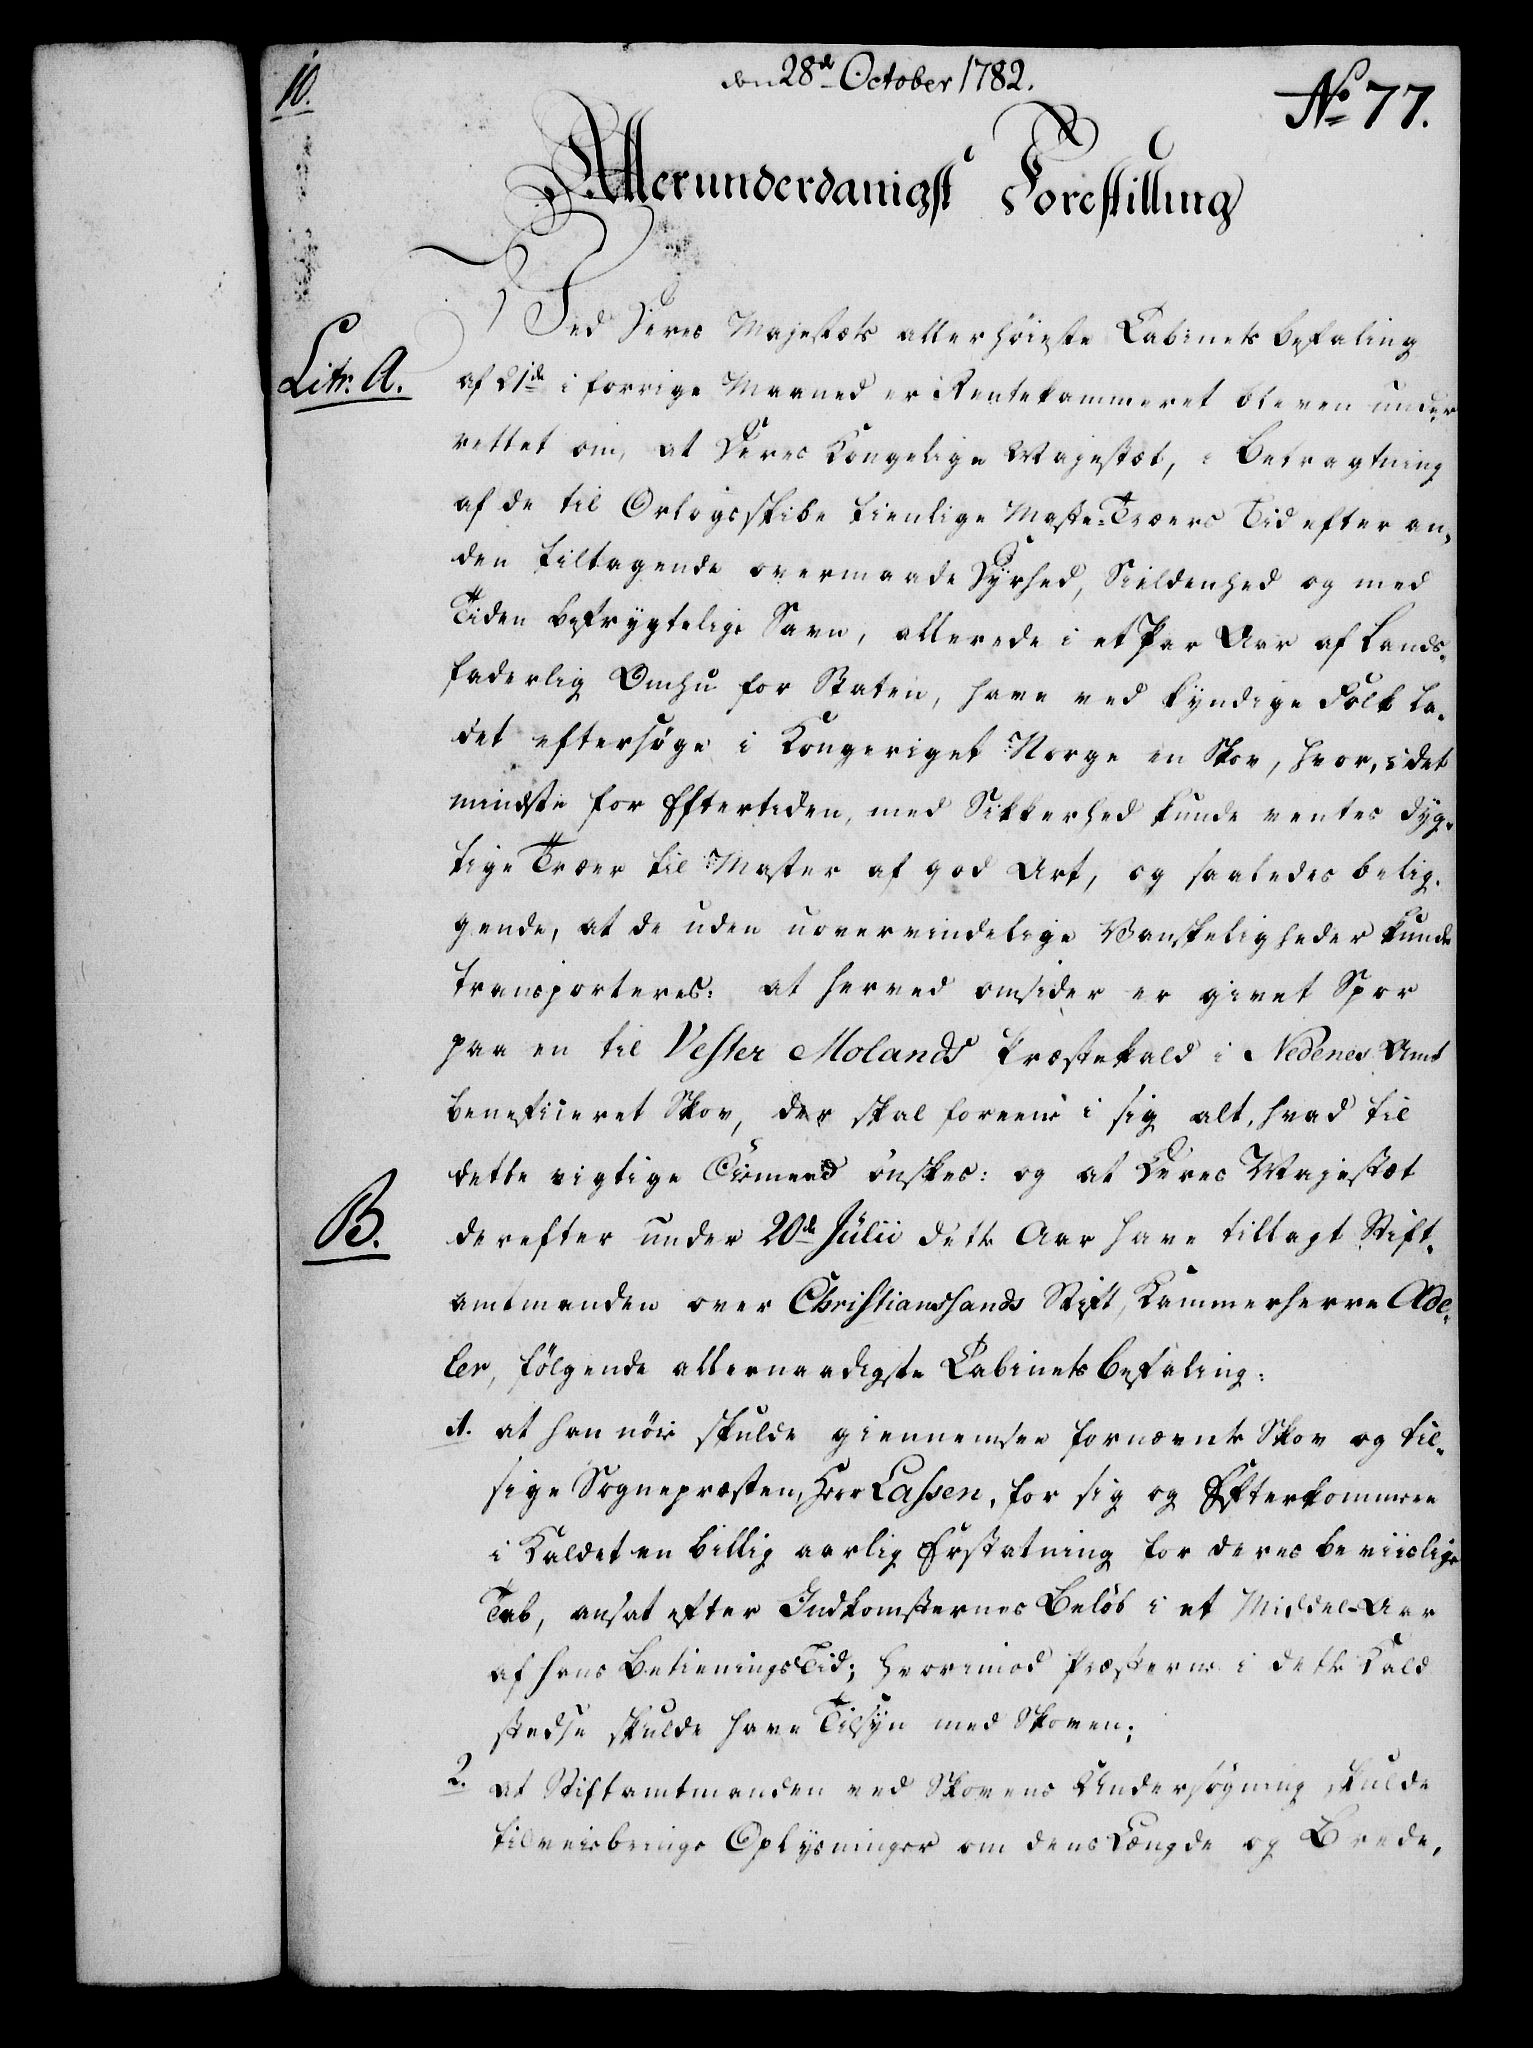 10.
den 28de October 1782.
No 77.
Allerunderdanigst Forestilling
Litr. A.
Ved Deres Majestæts allerhöieste Cabinets befaling
af 21de i forrige Maaned er Rentekammeret bleven under
rettet om, at Deres Kongelige Majestæt, i Betragtning
af de til Orlogsskibe tienlige Maste-Træers Tid efter an-
den tiltagende overmaade Dyrhed, Sieldenhed og med
Tiden befrygtelige Savn, allerede i et Par Aar af Lands-
faderlig Omhu for Staten, have ved kyndige Folk la-
det eftersöge i Kongeriget Norge en Skov, hvor, i det
mindste for Eftertiden, med Sikkerhed kunde ventes dyg-
tige Træer til Master af god Art, og saaledes belig-
gende, at de uden uovervindelige Vanskeligheder kunde
transporteres: at herved omsider er givet Spor
paa en til Vester Molands Præstekald i Nedenes Amt
beneficeret Skov, der skal foreene i sig alt, hvad til
dette vigtige Öiemeed önskes: og at Deres Majestæt
B.
derefter under 20de Julii dette Aar have tillagt Stift-
amtmanden over Christianssands Stift, Kammerherre Ade-
ler, fölgende allernaadigste Cabinets befaling:
1. at han nöie skulde giennemsee fornævnte Skov og til-
sige Sognepræsten, Herr Lassen, for sig og Efterkommere
i Kaldet en billig aarlig Erstatning for deres beviislige
Tab, ansat efter Indkomsternes Belöb i et Middel-Aar
af hans Betienings Tid; hvorimod Præsterne i dette Kald
stedse skulde have Tilsyn med Skoven;
2. at Stiftamtmanden ved Skovens Undersögning skulde
tilveiebringe Oplysninger om dens Længde og Brede,